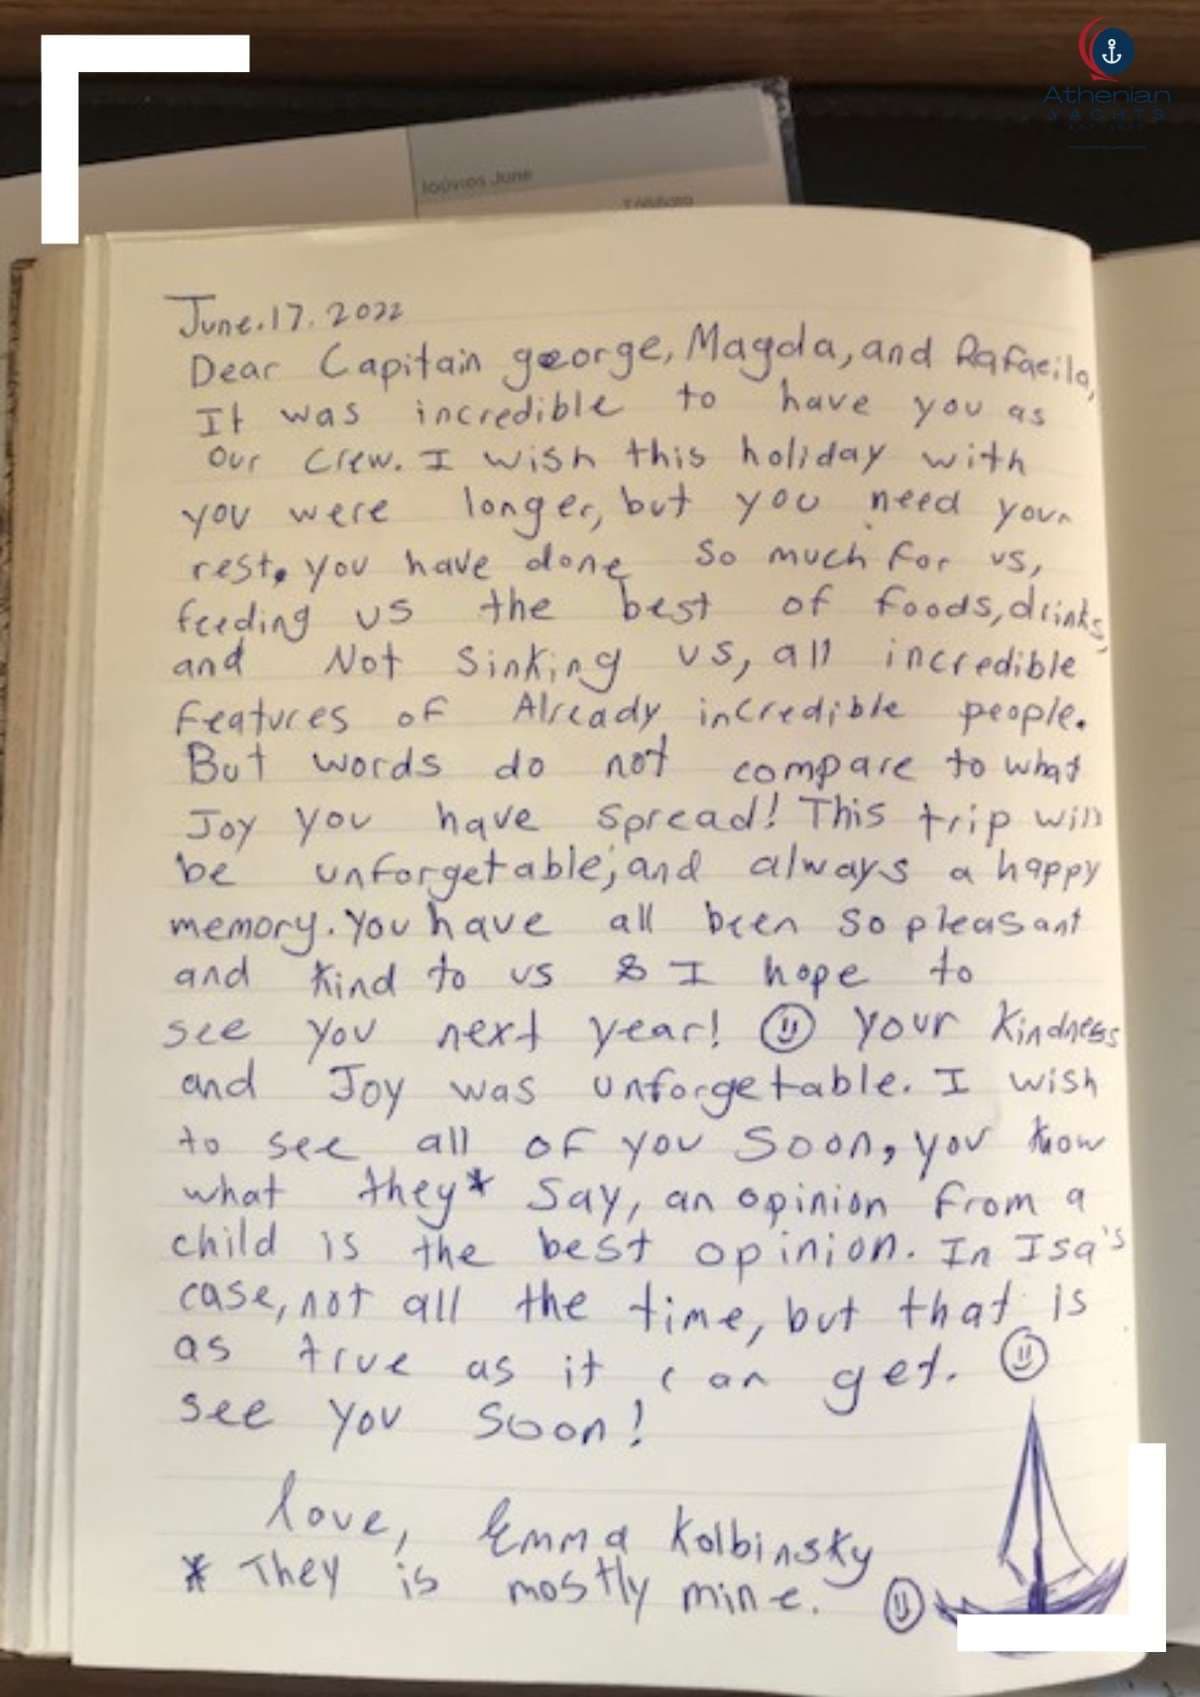 Athenian
YACHTS
Ιούνιος June
June.17.2022
Dear Capitain george, Magda, and Rafaeila,
It was incredible to have you as
our crew. I wish this holiday with
you were longer, but you need your
rest, you have done so much for us,
feeding us the best of foods, drinks,
and Not Sinking us, all incredible
features of Already incredible people.
But words do not compare to what
Joy you have spread! This trip will
be unforgetable; and always a happy
memory. You have all been so pleasant
and kind to us & I hope to
see you next year! ☺ Your kindness
and Joy was unforgetable. I wish
to see all of you soon, you know
what they* say, an opinion from a
child is the best opinion. In Isa's
case, not all the time, but that is
as true as it can get. ☺
see you soon!
love, Emma Kolbinsky
* They is mostly mine. ☺